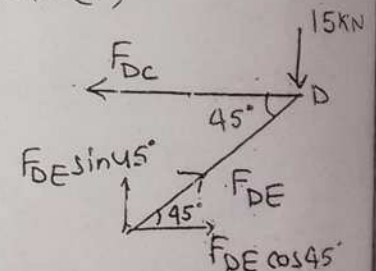 15KN
F_DC
D
45°
F_DE sin45°
F_DE
45°
F_DE cos45°